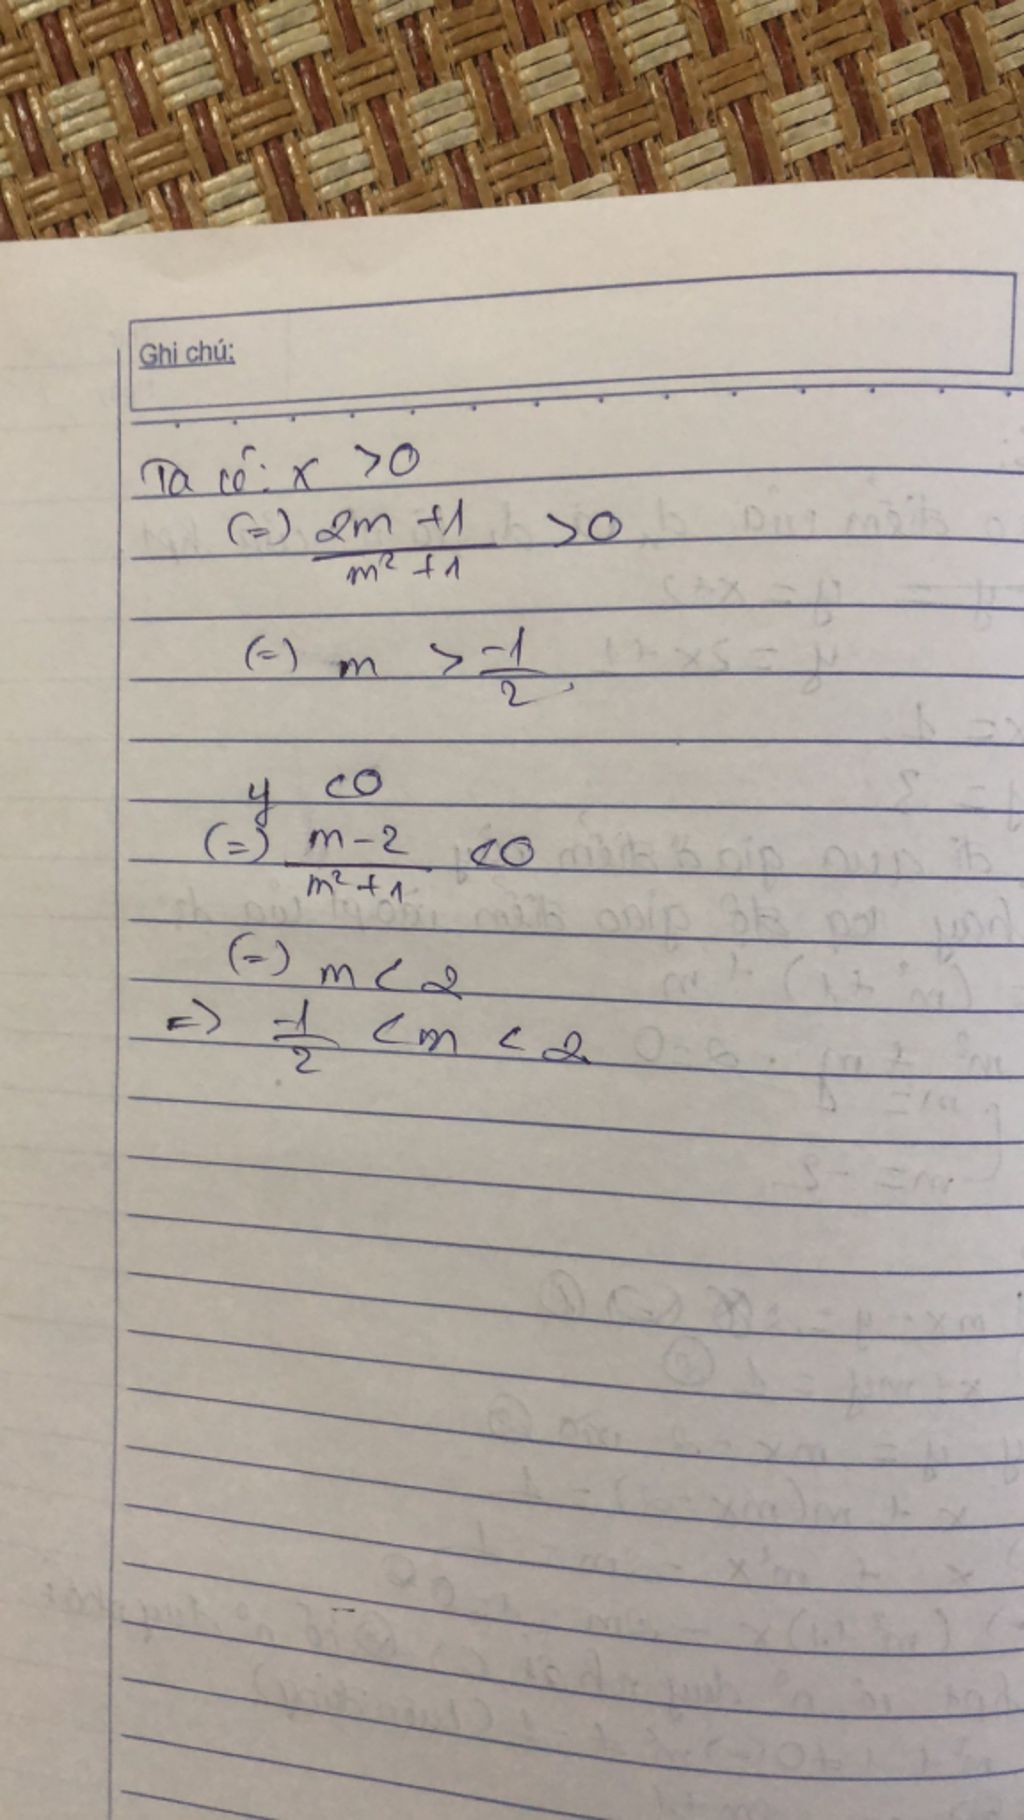 Ghi chú:
Ta có: x > 0
(=) 2m + 1 / m² + 1 > 0
(=) m > -1/2
y < 0
(=) m - 2 / m² + 1 < 0
(=) m < 2
=> -1/2 < m < 2